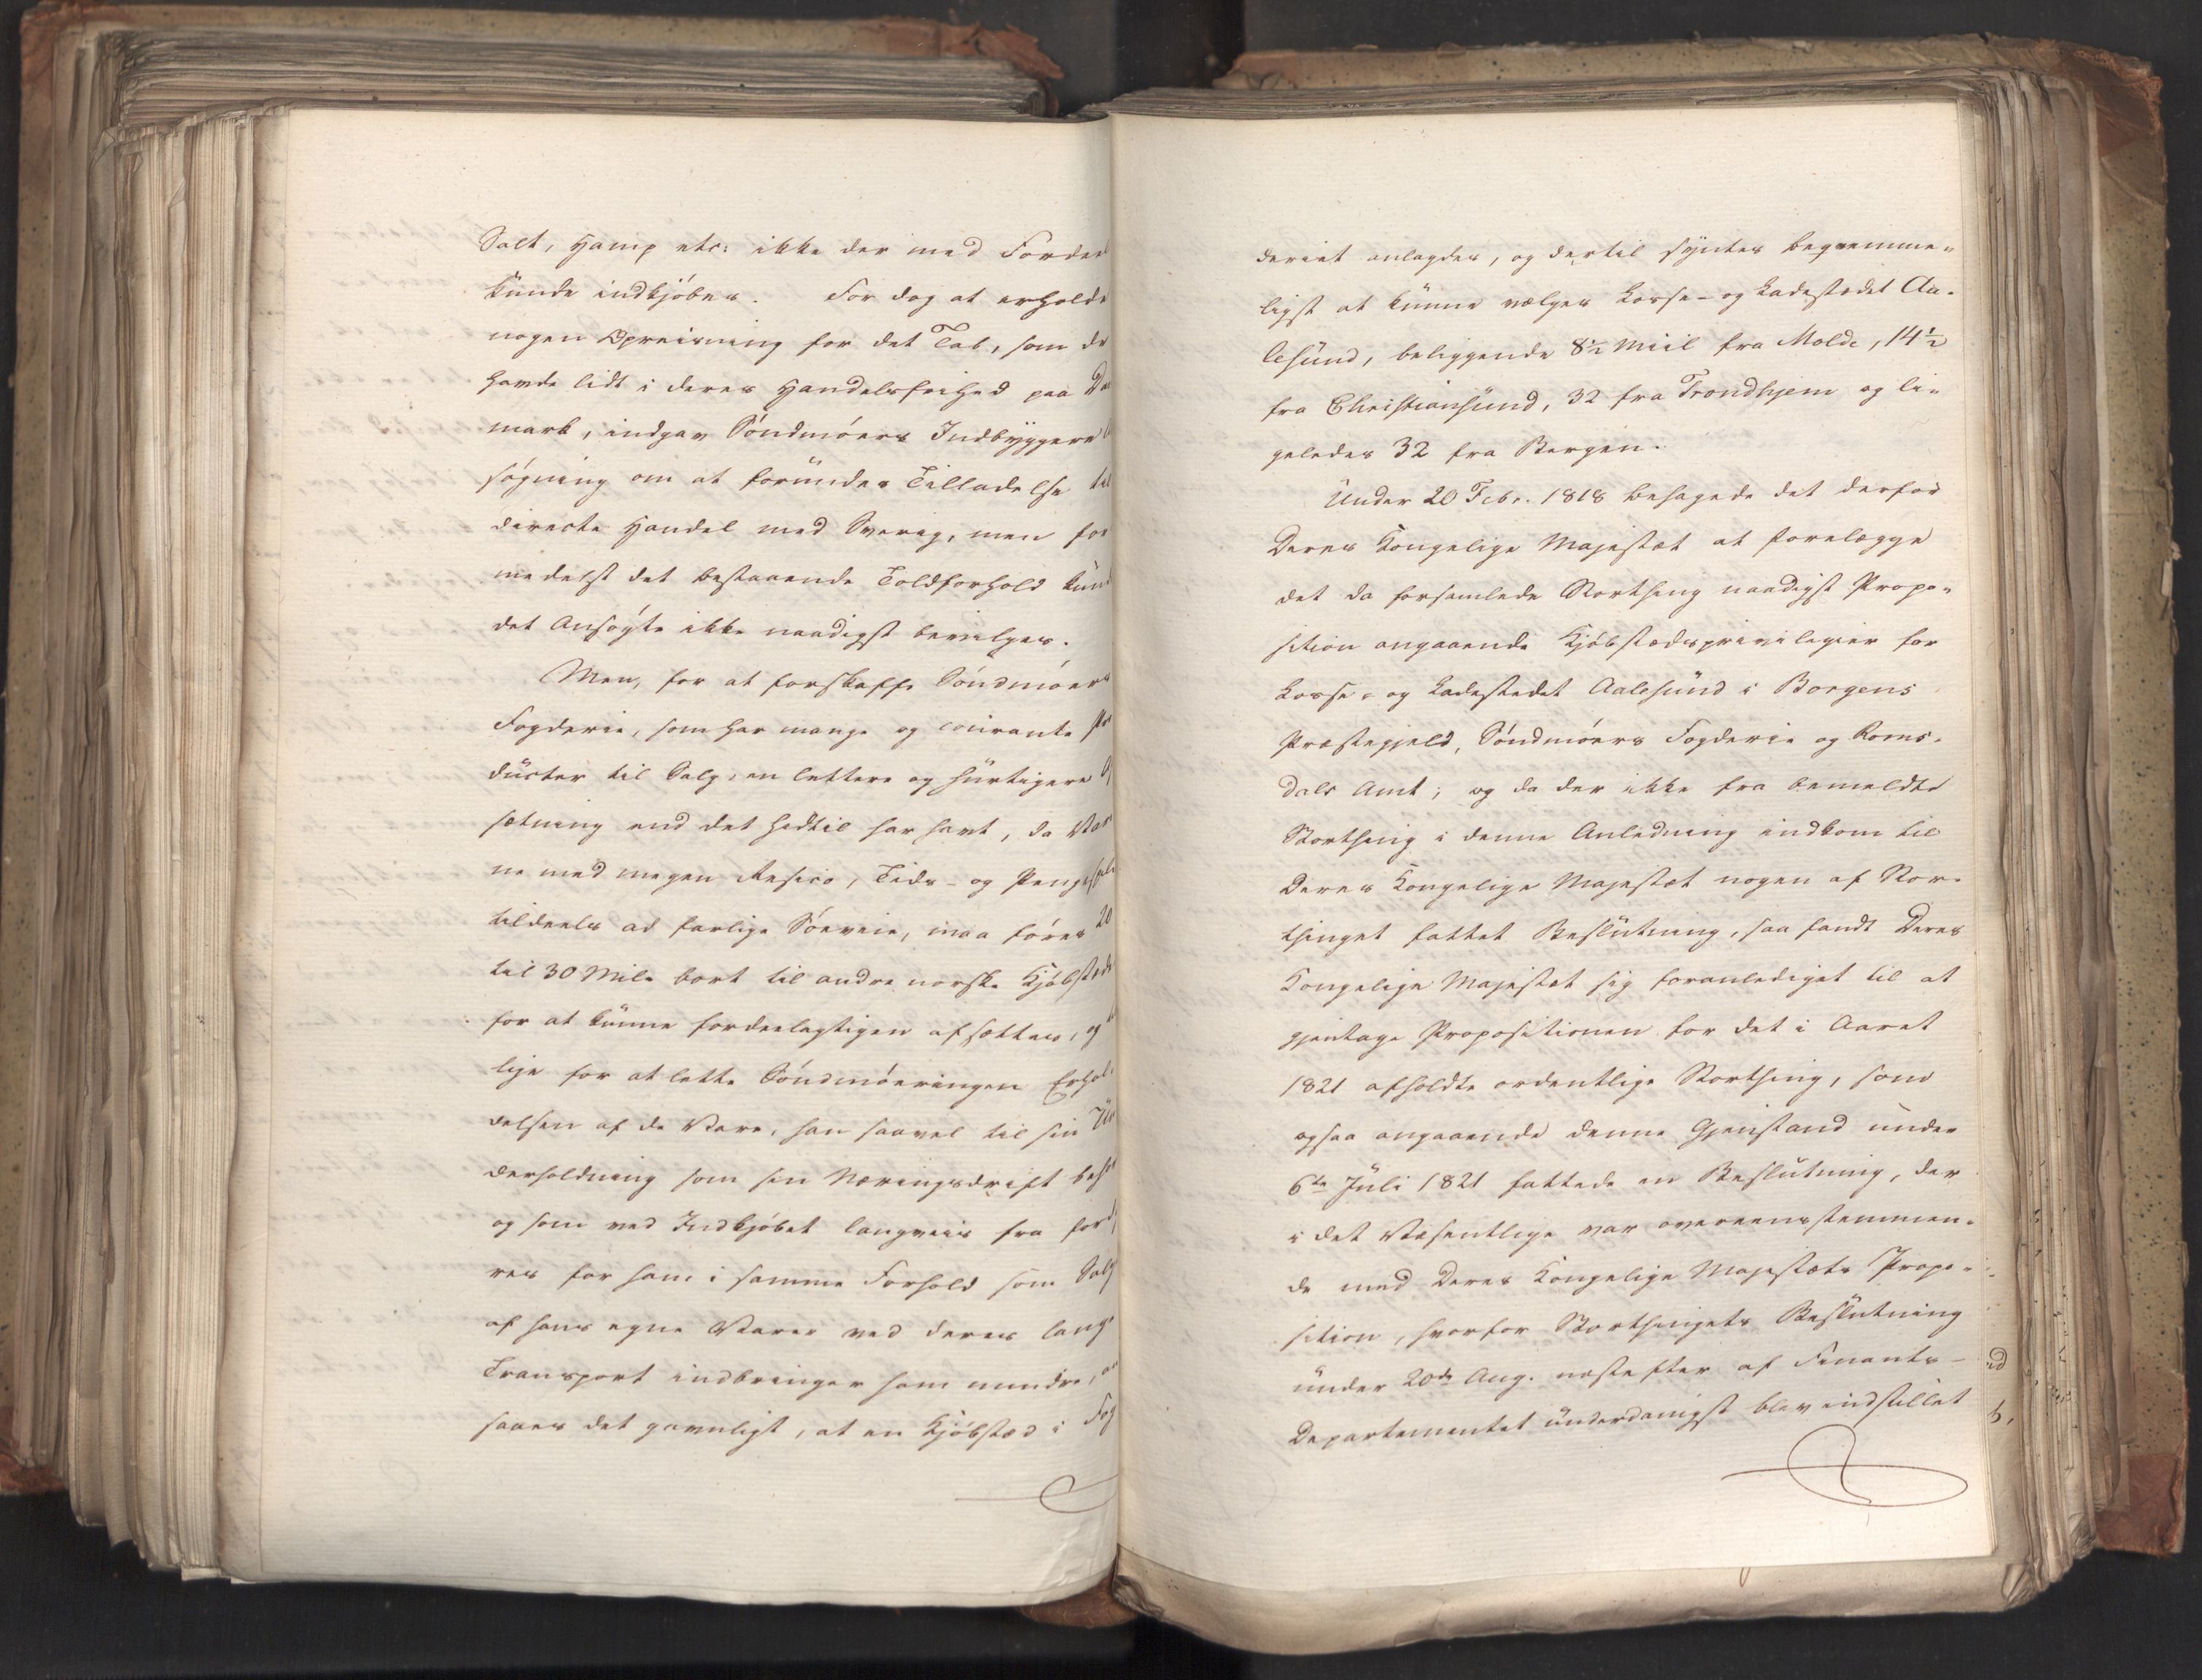 Salt, Hamp etc: ikke der med Fordeel
kunde indkjøbes. For dog at erholde
nogen Opreisning for det Tab, som de
havde lidt i deres Handelsfrihed paa Da
mark, indgav Søndmøers Indbyggere
søgning om at forundes Tilladelse til
directe Handel med Sverig, men for
medelst det bestaaende Toldforhold kund
det Ansøgte ikke naadigst bevilges.
Men, for at forskaffe Søndmøers
Fogderie, som har mange og courante Pro
ducter til Salg, en lettere og hurtigere Af
sætning end det hidtil har havt, da Vare
ne med megen Resico, Tids- og Pengespil
tildeels ad farlige Søeveie, maa føres 20
til 30 Mile bort til andre norske Kjøbstæde
for at kunne fordeelagtigen afsættes, og
lige for at lette Søndmøeringen Erhol-
delsen af de Vare, han saavel til sin Un
derholdning som sin Næringsdrift beh
og som ved Indkjøbet langveis fra ford
res for ham i samme Forhold som Salg
af hans egne Varer ved deres lange
Transport indbringer ham mindre, an
saaes det gavnligt, at en Kjøbstad i Fog
deriet anlagdes, og dertil syntes beqvemme-
ligst at kunne vælges Losse- og Ladestedet Aa-
lesund, beliggende 8½ Miil fra Molde, 14½
fra Christiansund, 32 fra Trondhjem og li-
geledes 32 fra Bergen.
Under 20 Febr. 1818 behagede det derfor
Deres Kongelige Majestæt at forelægge
det da forsamlede Storthing naadigst Propo-
sition angaaende Kjøbstadsprivilegier for
Losse- og Ladestedet Aalesund i Borgens
Præstegjeld, Søndmøers Fogderie og Roms-
dals Amt; og da der ikke fra bemeldte
Storthing i denne Anledning indkom til
Deres Kongelige Majestæt nogen af Stor-
thinget fattet Beslutning, saa fandt Deres
Kongelige Majestæt sig foranlediget til at
gjentage Propositionen for det i Aaret
1821 afholdte ordentlige Storthing, som
ogsaa angaaende denne Gjenstand under
6te Juli 1821 fattede en Beslutning, der
i det Væsentlige var overeensstemmen-
de med Deres Kongelige Majestæts Propo-
sition, hvorfor Storthingets Beslutning
under 20de Aug. næstefter af Finants-
Departementet underdanigst blev indstillet